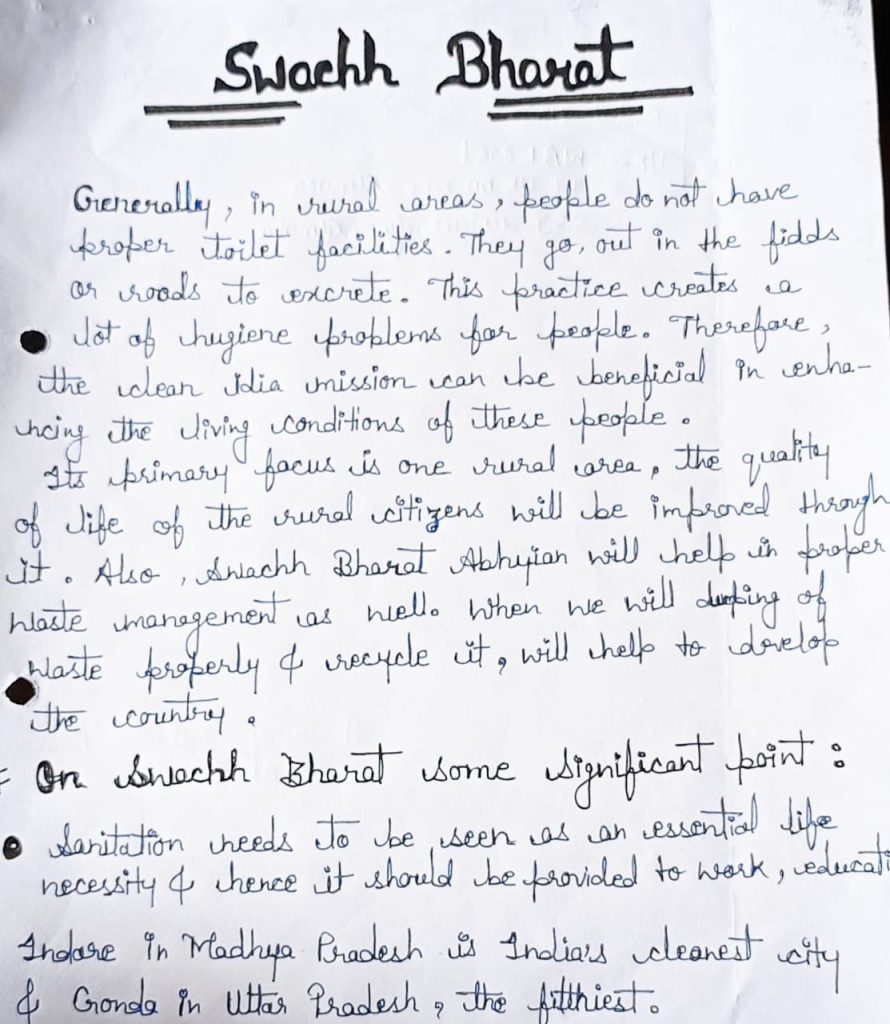 Swachh Bharat
Generally, in rural areas, people do not have
proper toilet facilities. They go, out in the fidds
or roads to excrete. This practice creates a
lot of hugiene problems for people. Therefore,
the clean idia mission can be beneficial in enha-
ncing the living conditions of these people.
Its primary focus is one rural area, the quality
of life of the rural citizens will be improved through
it. Also, Swachh Bharat Abhyian will help in proper
waste management as well. When we will dumping of
waste properly & recycle it, will help to develop
the country.
On Swachh Bharat some significant point :
Sanitation needs to be seen as an essential life
necessity & hence it should be provided to work, educati
Indore in Madhya Pradesh is India's cleanest city
& Gonda in Uttar Pradesh, the filthiest.